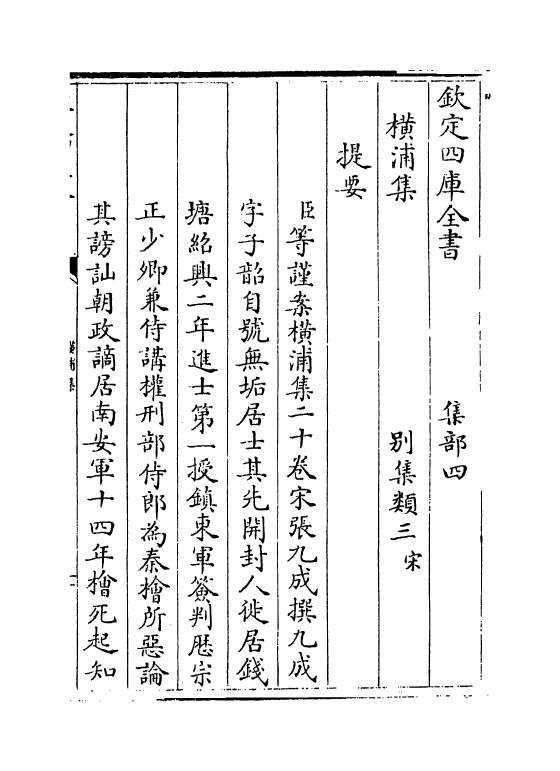 欽定四庫全書　集部四
橫浦集　別集類三宋
提要
臣等謹案橫浦集二十卷宋張九成撰九成
字子韶自號無垢居士其先開封人徙居錢
塘紹興二年進士第一授鎮東軍簽判歷宗
正少卿兼侍講權刑部侍郎為秦檜所惡論
其謗訕朝政謫居南安軍十四年檜死起知